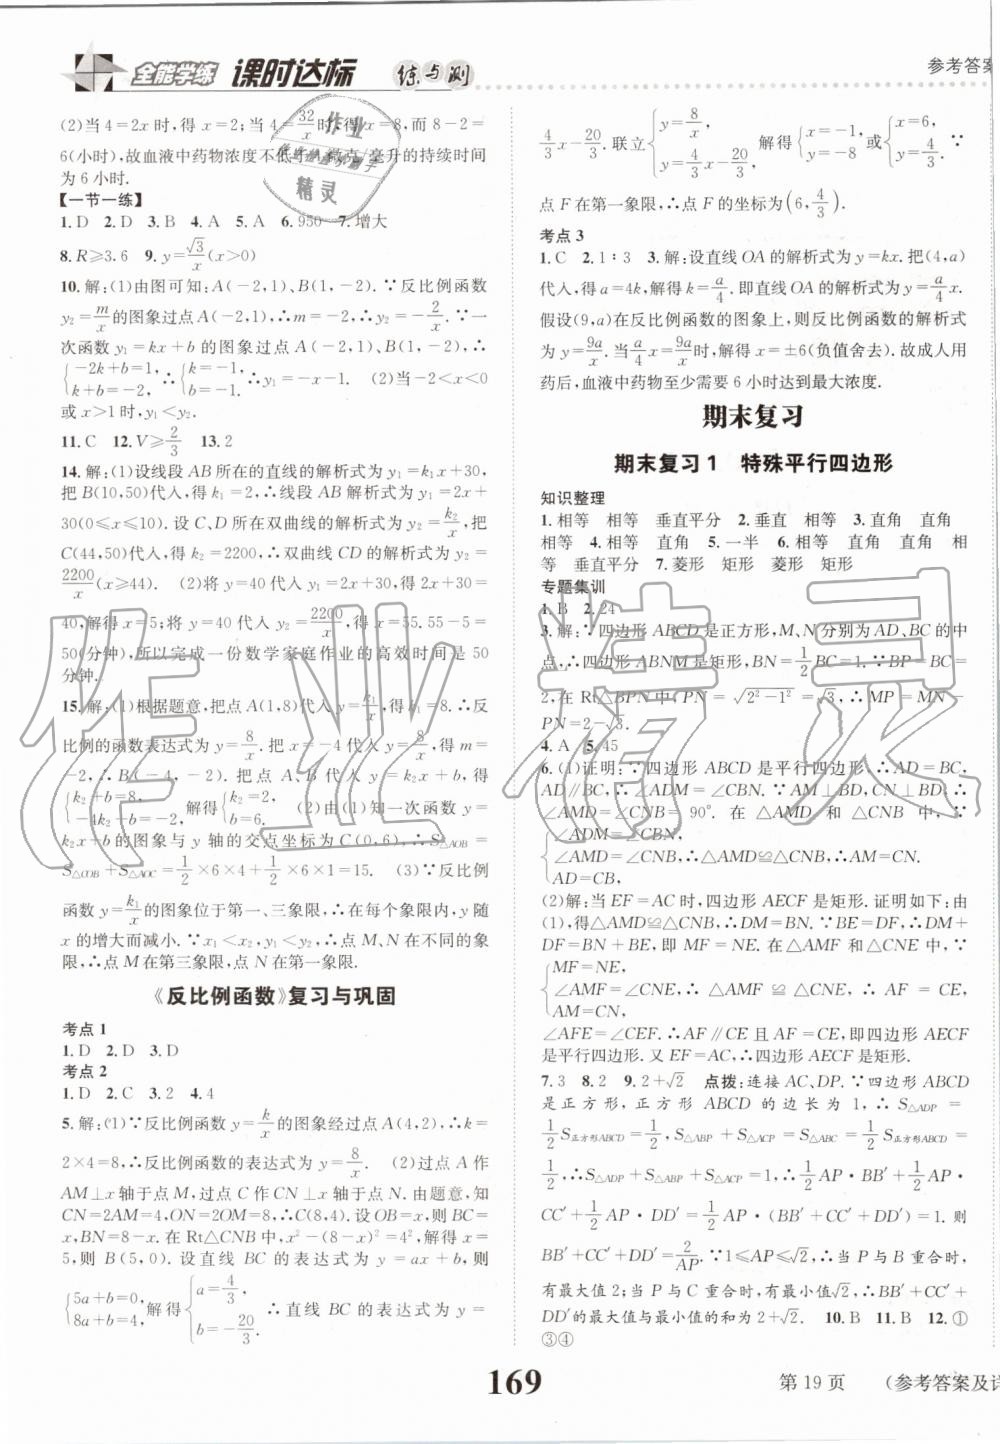 全能学练 课时达标 练与测
参考答案
(2)当4=2x时,得x=2;当4=32/x时,得x=8,而8-2=
6(小时),故血液中药物浓度不低于4微克/毫升的持续时间
为6小时.
【一节一练】
1.D 2.D 3.B 4.A 5.A 6.950 7.增大
8.R≥3.6 9.y=√3/x(x>0)
10.解:(1)由图可知:A(-2,1)、B(1,-2).∵反比例函数
y₂=m/x的图象过点A(-2,1),∴m=-2,∴y₂=-2/x.∵一
次函数y₁=kx+b的图象过点A(-2,1)、B(1,-2),∴
{-2k+b=1, k+b=-2. ∴{k=-1, b=-1. ∴y₁=-x-1. (2)当-2<x<0
或x>1时,y₁<y₂.
11.C 12.V≥2/3 13.2
14.解:(1)设线段AB所在的直线的解析式为y₁=k₁x+30,
把B(10,50)代入,得k₁=2,∴线段AB的解析式为y₁=2x+
30(0≤x≤10).设C、D所在双曲线的解析式为y₂=k₂/x,把
C(44,50)代入,得k₂=2200,∴双曲线CD的解析式为y₂=
2200/x(x≥44). (2)将y=40代入y₁=2x+30得2x+30=
40,解得x=5;将y=40代入y₂=2200/x得x=55.55-5=
50(分钟),所以完成一份数学家庭作业的高效时间是50
分钟.
15.解:(1)根据题意,把点A(1,8)代入y=k₁/x,得k₁=8.∴反
比例的函数表达式为y=8/x.把x=-4代入y=8/x,得m=
-2,∴B(-4,-2).把点A、B坐标代入y=k₂x+b,得
{k₂+b=8, -4k₂+b=-2, 解得{k₂=2, b=6. (2)设(1)知一次函数y=
k₂x+b的图象与y轴的交点坐标为C(0,6),∴S△AOB=
S△COB+S△AOC=1/2×6×4+1/2×6×1=15. (3)∵反比例
函数y=k₁/x的图象位于第一、三象限,∴在每个象限内,y随
x的增大而减小.∵x₁<x₂,y₁<y₂,∴点M、N在不同的象
限,∴点M在第三象限,点N在第一象限.
《反比例函数》复习与巩固
考点1
1.D 2.D 3.D
考点2
1.D 2.C 3.2 4.4
5.解:(1)∵反比例函数y=k/x的图象经过点A(4,2),∴k=
2×4=8,∴反比例函数的表达式为y=8/x. (2)过点A作
AM⊥x轴于点M,过点C作CN⊥x轴于点N.由题意,知
CN=2AM=4,ON=2OM=8,∴C(8,4).设OB=x,则BC=x,
BN=8-x.在Rt△CNB中,x²-(8-x)²=4²,解得x=
5,则B(5,0).设直线BC的表达式为y=ax+b,则
{5a+b=0, 8a+b=4, 解得{a=4/3, b=-20/3. ∴直线BC的表达式为y=
4/3x-20/3.联立{y=8/x, y=4/3x-20/3, 解得{x=-1, y=-8 或{x=6, y=4/3. ∵
点F在第一象限,∴点F的坐标为(6,4/3).
考点3
1.C 2.1:3 3.解:设直线OA的解析式为y=kx.把(4,a)
代入,得a=4k,解得k=a/4.即直线OA的解析式为y=a/4x.
假设(9,a)在反比例函数的图象上,则反比例函数的解析式
为y=9a/x.当a/4x=9a/x时,解得x=±6(负值舍去).故成人用
药后,血液中药物至少需要6小时达到最大浓度.
期末复习
期末复习1 特殊平行四边形
知识整理
1.相等 相等 垂直平分 2.垂直 相等 3.直角 直角
相等 4.相等 直角 5.一半 6.相等 直角 直角 相
等 垂直平分 7.菱形 矩形 菱形 矩形
专题集训
1.B 2.24
3.解:∵四边形ABCD是正方形,M、N分别为AD、BC的中
点,∴四边形ABNM是矩形,BN=1/2BC=1.∵BP=BC=
2,在Rt△BPN中,PN=√2²-1²=√3,∴MP=MN-
PN=2-√3.
4.A 5.45
6.(1)证明:∵四边形ABCD是平行四边形,∴AD=BC,
AD∥BC,∴∠ADM=∠CBN.∵AM⊥BD,CN⊥BD,∴
∠AMD=∠CNB=90°.在△AMD和△CNB中,∵
{∠ADM=∠CBN,
∠AMD=∠CNB,∴△AMD≌△CNB,∴AM=CN.
AD=CB.
(2)解:当EF=AC时,四边形AECF是矩形.证明如下:由
(1),得△AMD≌△CNB,∴DM=BN.∵BE=DF,∴DM+
DF=BN+BE,即MF=NE.在△AMF和△CNE中,∵
{MF=NE,
∠AMF=∠CNE,∴△AMF≌△CNE,∴AF=CE,
AM=CN,
∠AFE=∠CEF.∴AF∥CE且AF=CE,即四边形AECF
是平行四边形.又EF=AC,∴四边形AECF是矩形.
7.3 8.2 9.2+√2 点拨:连接AC、DP.∵四边形ABCD
是正方形,正方形ABCD的边长为1,∴S△ADP=
1/2S正方形ABCD=1/2,S△ABP+S△ACP=S△ABC=1/2S正方形ABCD
=1/2,∴S△ADP+S△ABP+S△ACP=1,∴1/2AP·BB′+1/2AP·
CC′+1/2AP·DD′=1/2AP·(BB′+CC′+DD′)=1.则
BB′+CC′+DD′=2/AP.∵1≤AP≤√2,∴当P与B重合时,
有最大值2;当P与C重合时,有最小值√2,∴BB′+CC′+
DD′的最大值与最小值的和为2+√2. 10.B 11.B 12.①
③④
169
第19页 (参考答案及详
作业精灵
作业
精灵